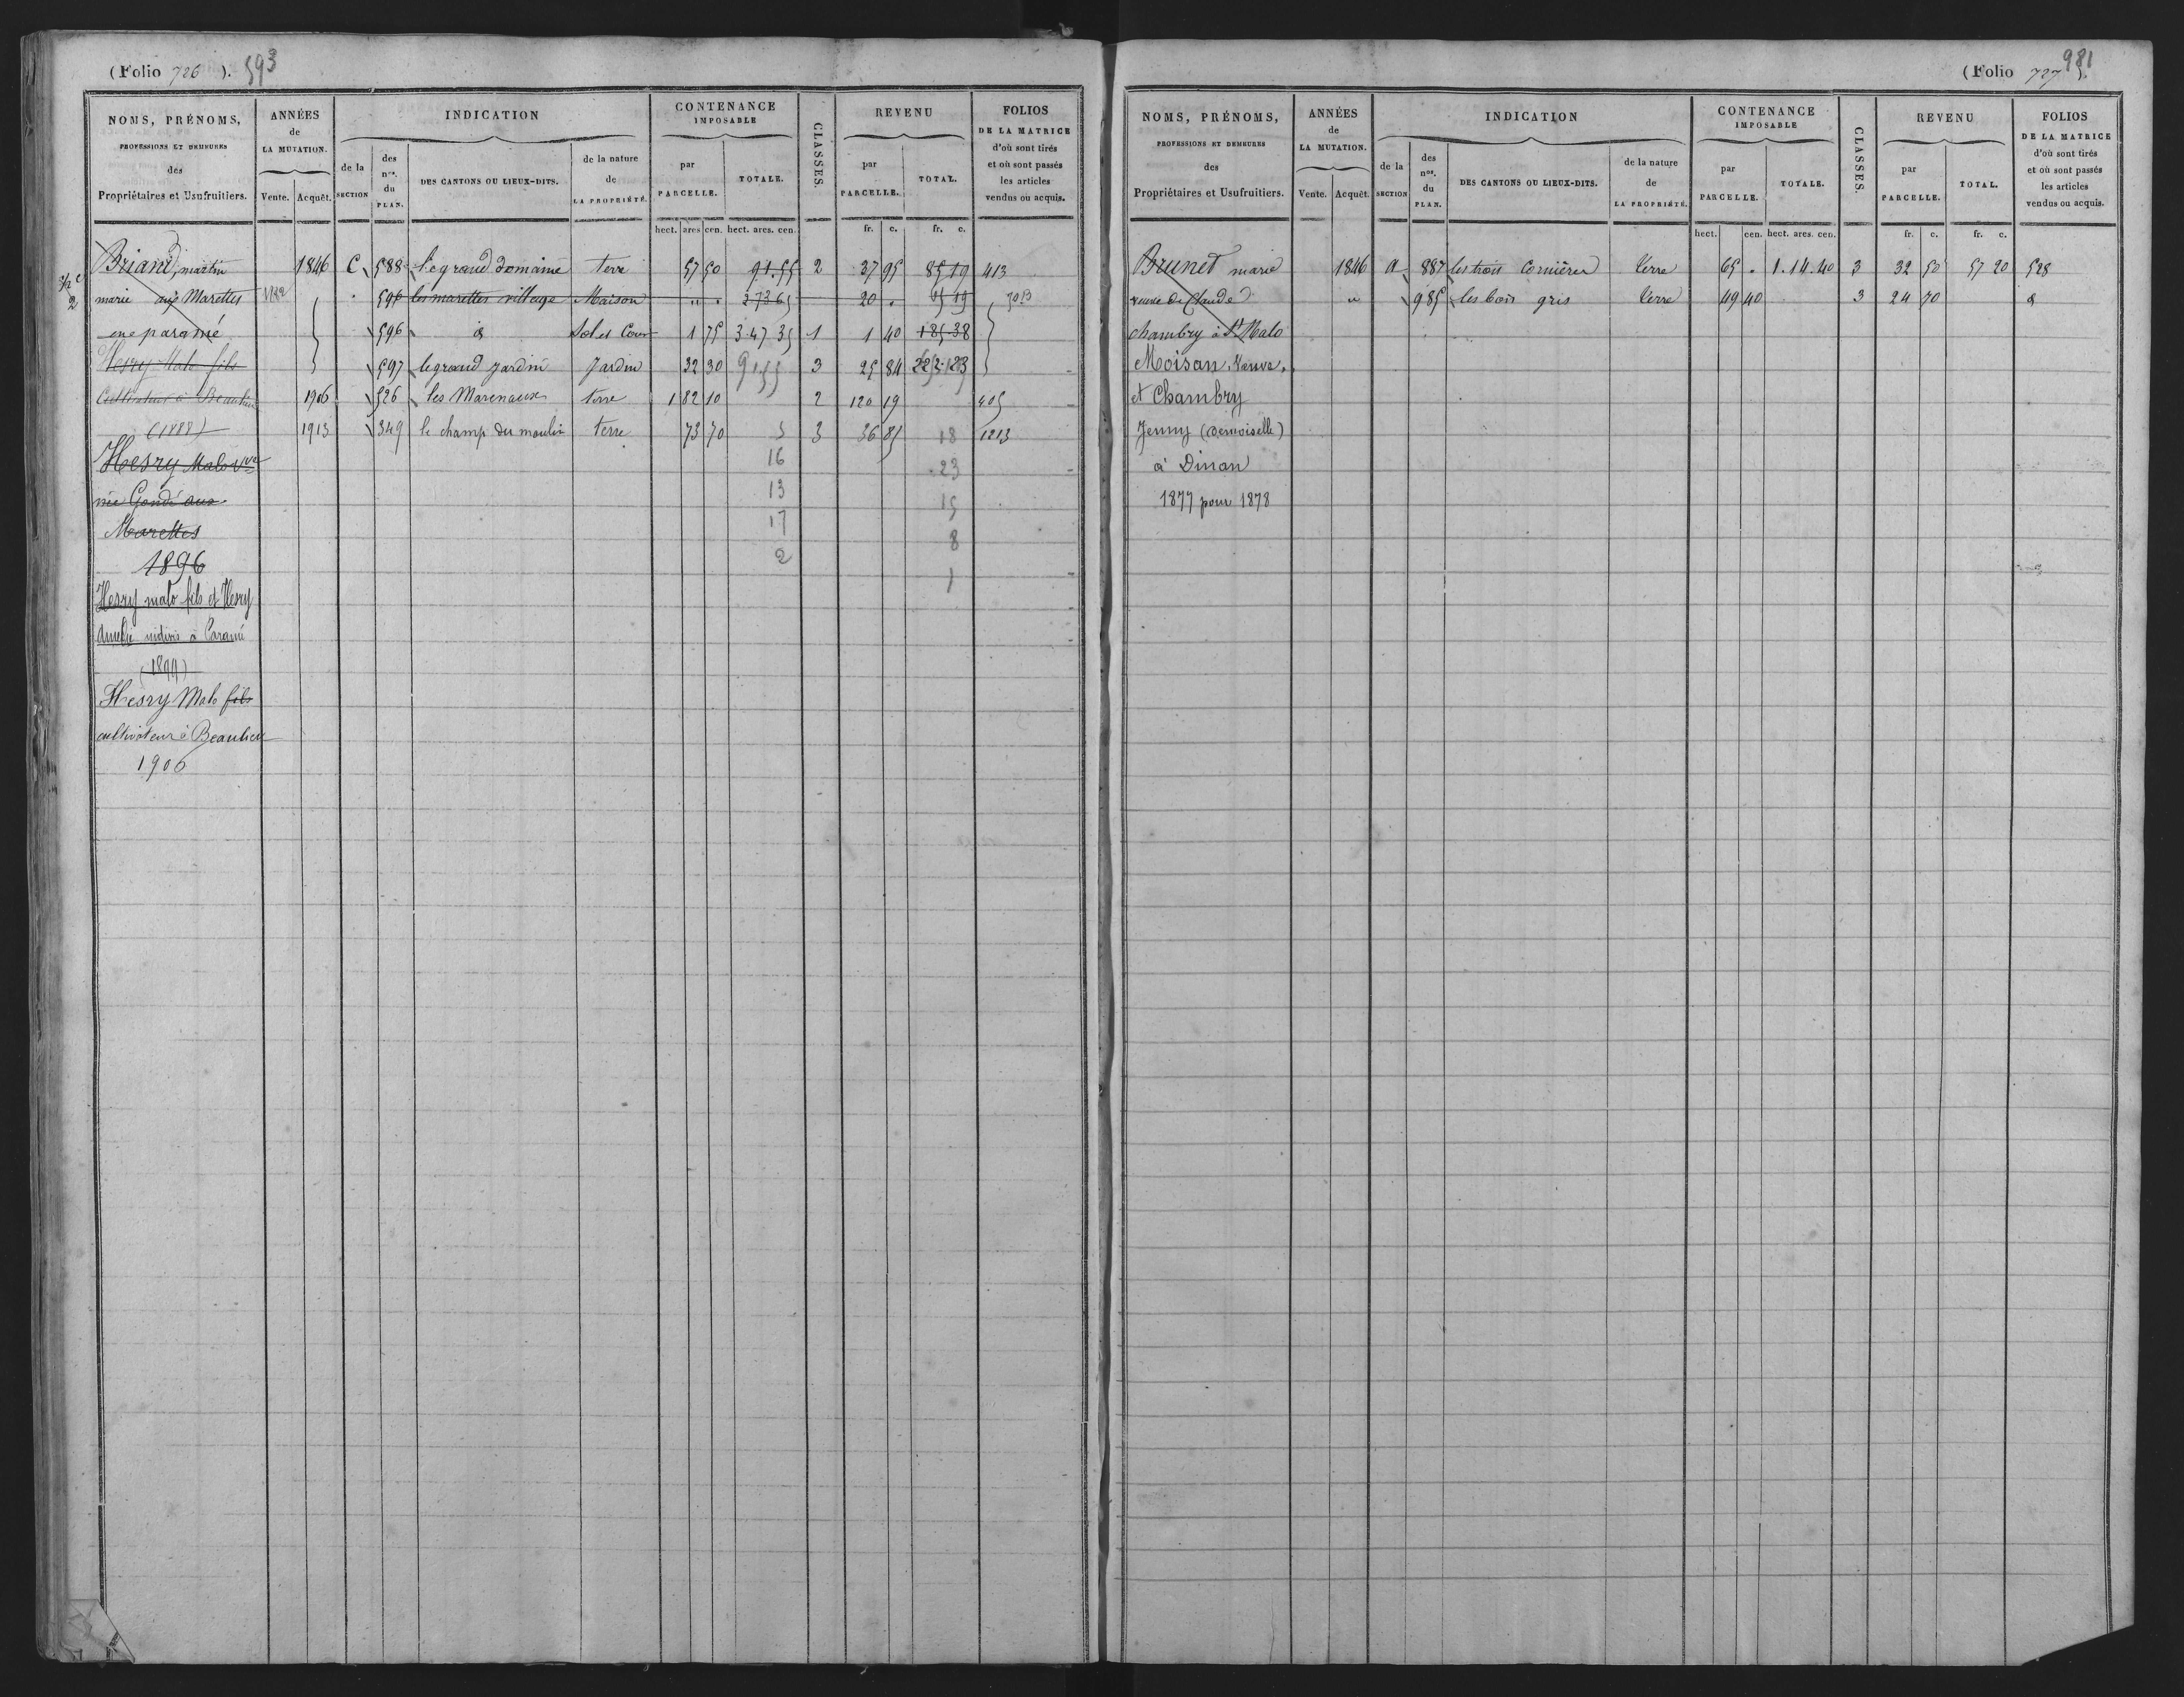 (Folio 726). 593
NOMS, PRÉNOMS,
PROFESSIONS ET DEMEURES
des
Propriétaires et Usufruitiers.
ANNÉES
de
LA MUTATION.
Vente. Acquêt.
INDICATION
de la
SECTION
des
nos.
du
PLAN.
DES CANTONS OU LIEUX-DITS.
de la nature
de
LA PROPRIÉTÉ.
CONTENANCE
IMPOSABLE
par
PARCELLE.
TOTALE.
CLASSES.
REVENU
par
PARCELLE.
TOTAL.
FOLIOS
DE LA MATRICE
d'où sont tirés
et où sont passés
les articles
vendus ou acquis.
hect. ares cen. hect. ares. cen. fr. c. fr. c.
Briand, martin 1846 C 588 le grand domaine terre 57 50 91.55 2 37 95 85 19 413
marie aux Marettes 596 les marettes village Maison " . 2 73 65 20 .
en paramé 596 d Sol et Cour 1 75 3.47 35 1 1 40 185.38
Hesry Malo fils 597 le grand jardin Jardin 32 30 91 55 3 25 84
Cultivateur à Beaulieu 1906 526 les Marenaux terre 1 82 10 2 120 19 405
(1888) 1913 349 le champ du moulin terre 73 70 5 3 36 85 18 1213
Hesry Malo Vve 16 23
née Gondé aux 13 15
Marettes 17 8
1896 2 1
Hesry malo fils et Hesry
Amélie indivis à Paramé
(1899)
Hesry Malo fils
cultivateur à Beaulieu
1906
(Folio 727). 981
NOMS, PRÉNOMS,
PROFESSIONS ET DEMEURES
des
Propriétaires et Usufruitiers.
ANNÉES
de
LA MUTATION.
Vente. Acquêt.
INDICATION
de la
SECTION
des
nos.
du
PLAN.
DES CANTONS OU LIEUX-DITS.
de la nature
de
LA PROPRIÉTÉ.
CONTENANCE
IMPOSABLE
par
PARCELLE.
TOTALE.
CLASSES.
REVENU
par
PARCELLE.
TOTAL.
FOLIOS
DE LA MATRICE
d'où sont tirés
et où sont passés
les articles
vendus ou acquis.
hect. cen. hect. ares. cen. fr. c. fr. c.
Brunet marie 1846 a 887 les trois Cornières terre 65 . 1.14.40 3 32 50 57 20 528
veuve de Claude " 985 les bois gris terre 49 40 3 24 70 d
chambry à St Malo
Moisan, Veuve,
et Chambry
Jenny (Demoiselle)
à Dinan
1877 pour 1878